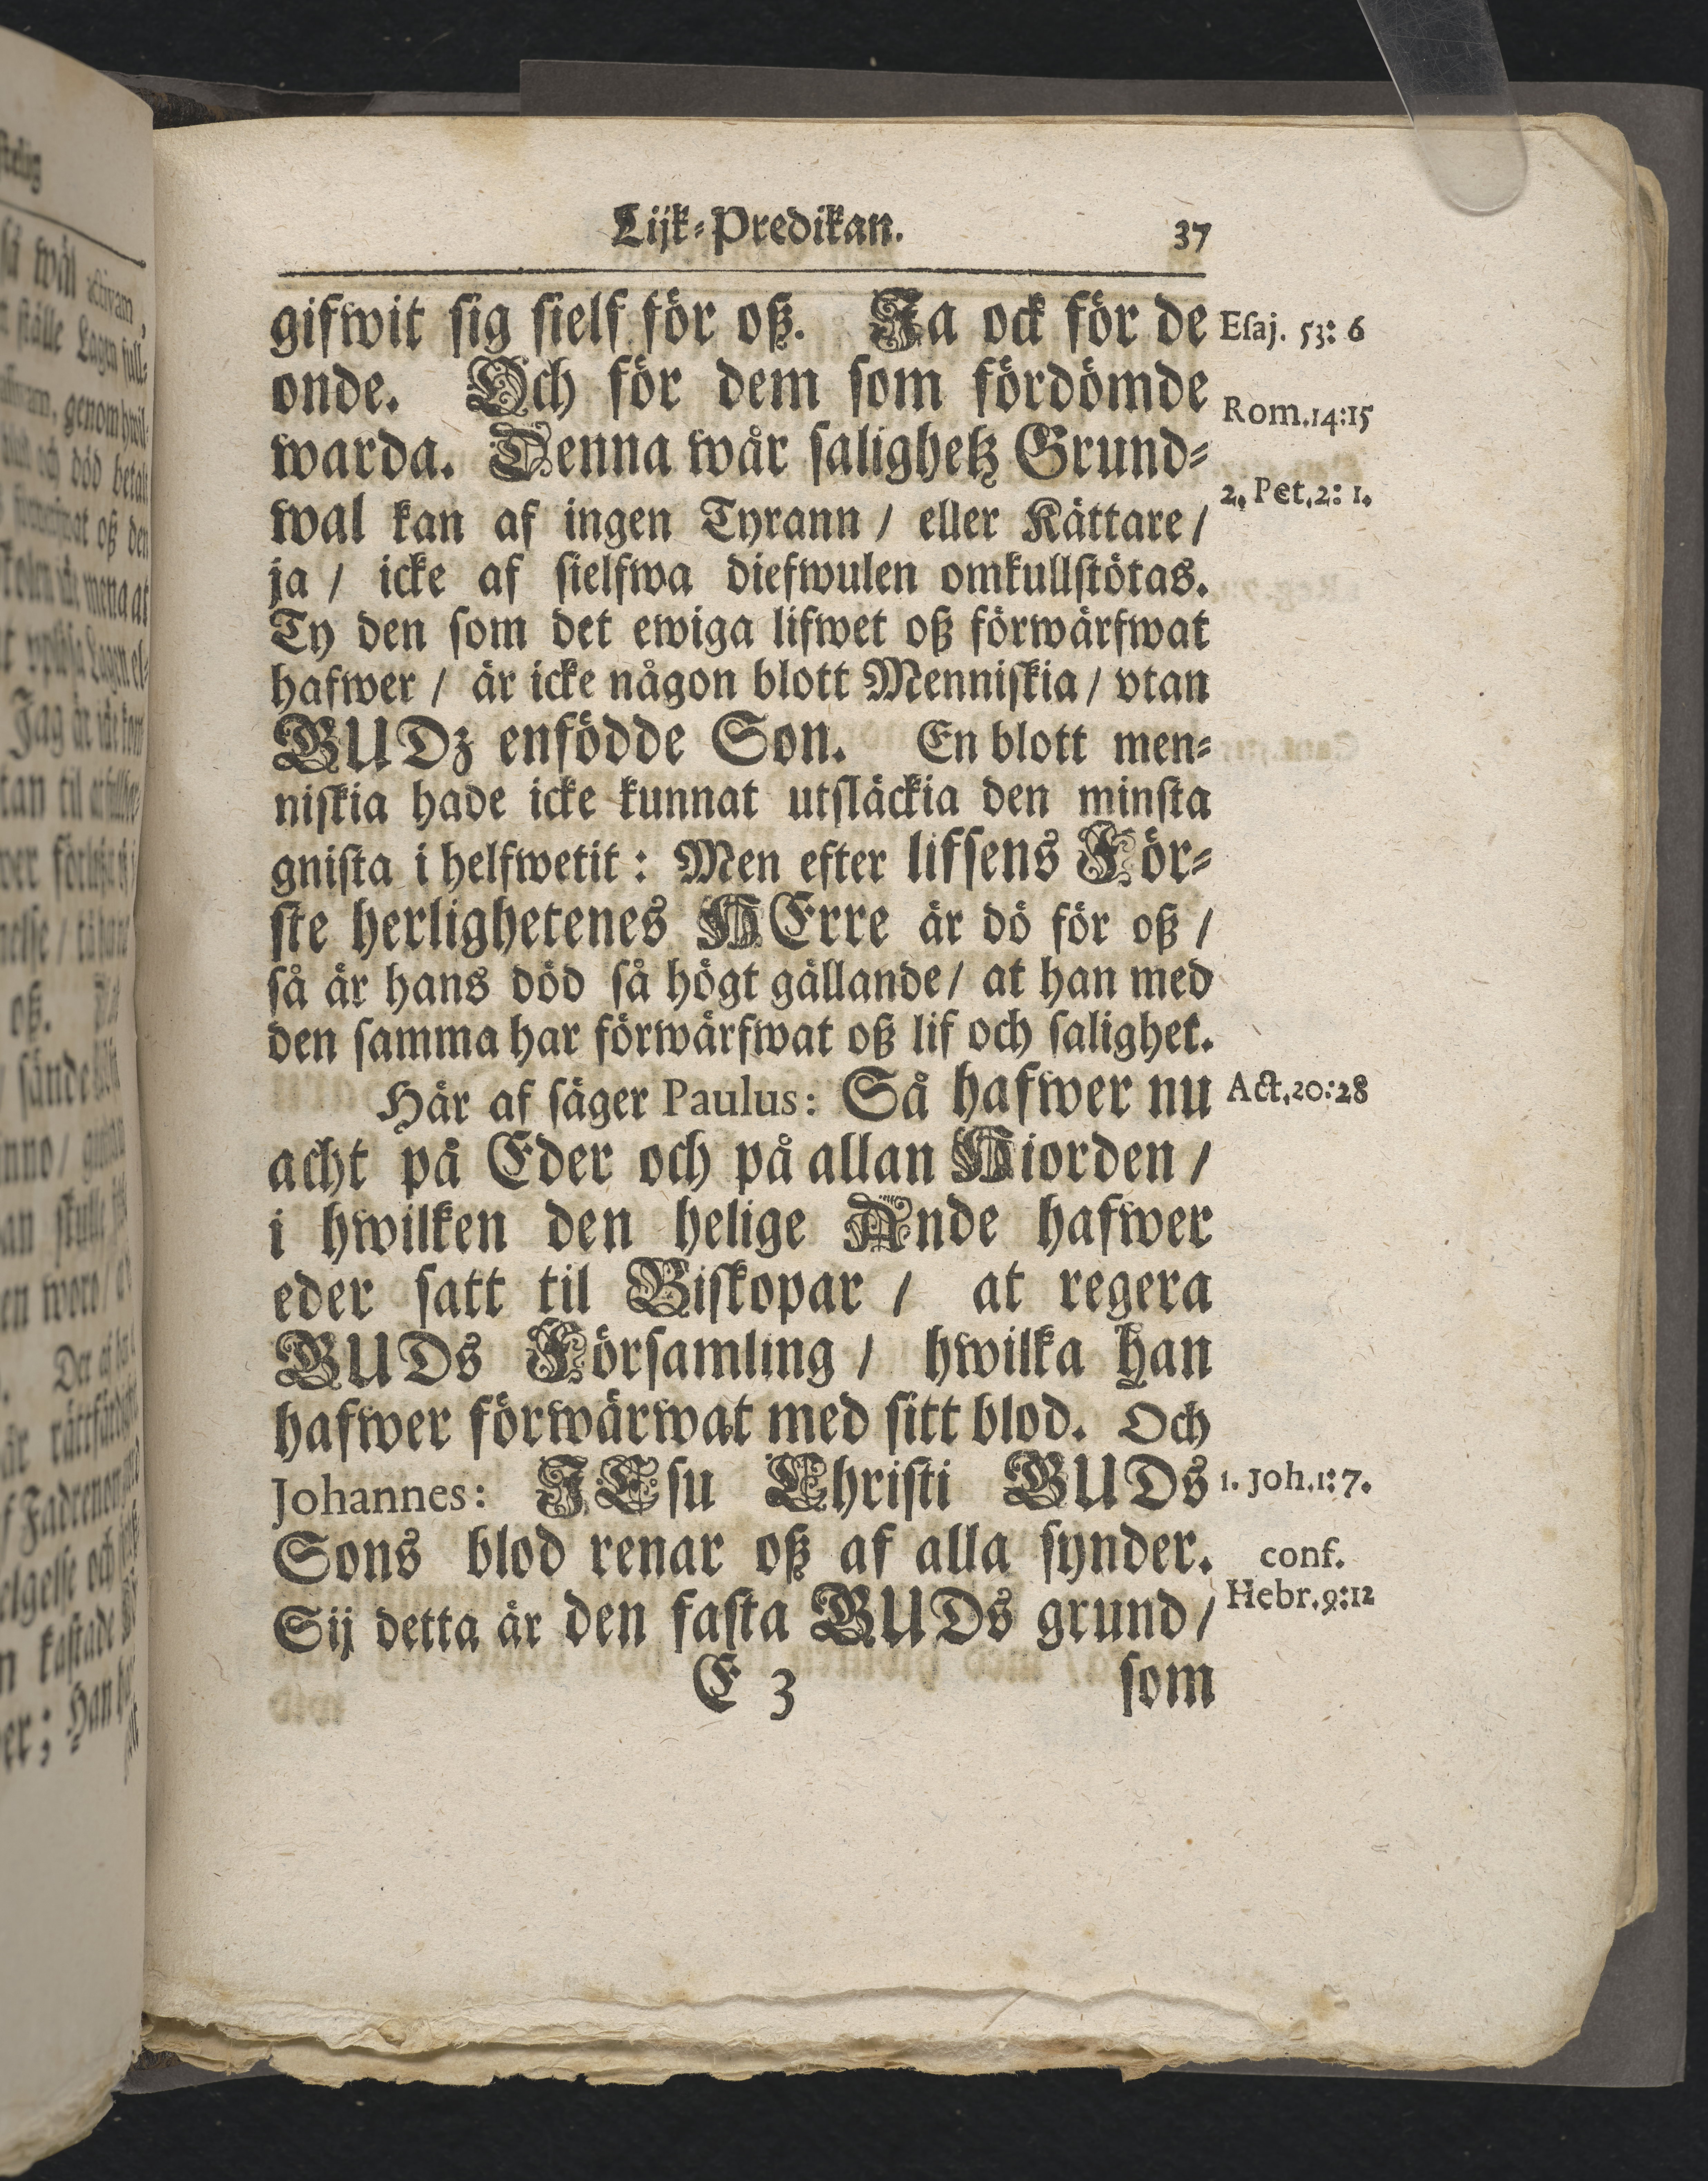 Lijk-Predikan. 37
gifwit sig sielf för oß. Ja ock för de Esaj. 53: 6
onde. Och för dem som fördömde
Rom. 14:15
warda. Denna wår salighetz Grund-
2. Pet. 2: 1.
wal kan af ingen Tyrann / eller Kättare /
ja / icke af sielfwa diefwulen omkullstötas.
Ty den som det ewiga lifwet oß förwärfwat
hafwer / är icke någon blott Menniskia / vtan
GUDz enfödde Son. En blott men-
niskia hade icke kunnat utsläckia den minsta
gnista i helfwetit : Men efter lifsens För-
ste herlighetenes HErre är dö för oß /
så är hans död så högt gällande / at han med
den samma har förwärfwat oß lif och salighet.
Här af säger Paulus: Så hafwer nu Act. 20:28
acht på Eder och på allan Hiorden /
i hwilken den helige Ande hafwer
eder satt til Biskopar / at regera
GUDs Församling / hwilka han
hafwer förwärwat med sitt blod. Och
Johannes: JEsu Christi GUDs 1. Joh. 1: 7.
Sons blod renar oß af alla synder. conf.
Hebr. 9:12
Sij detta är den fasta GUDs grund /
E 3 som